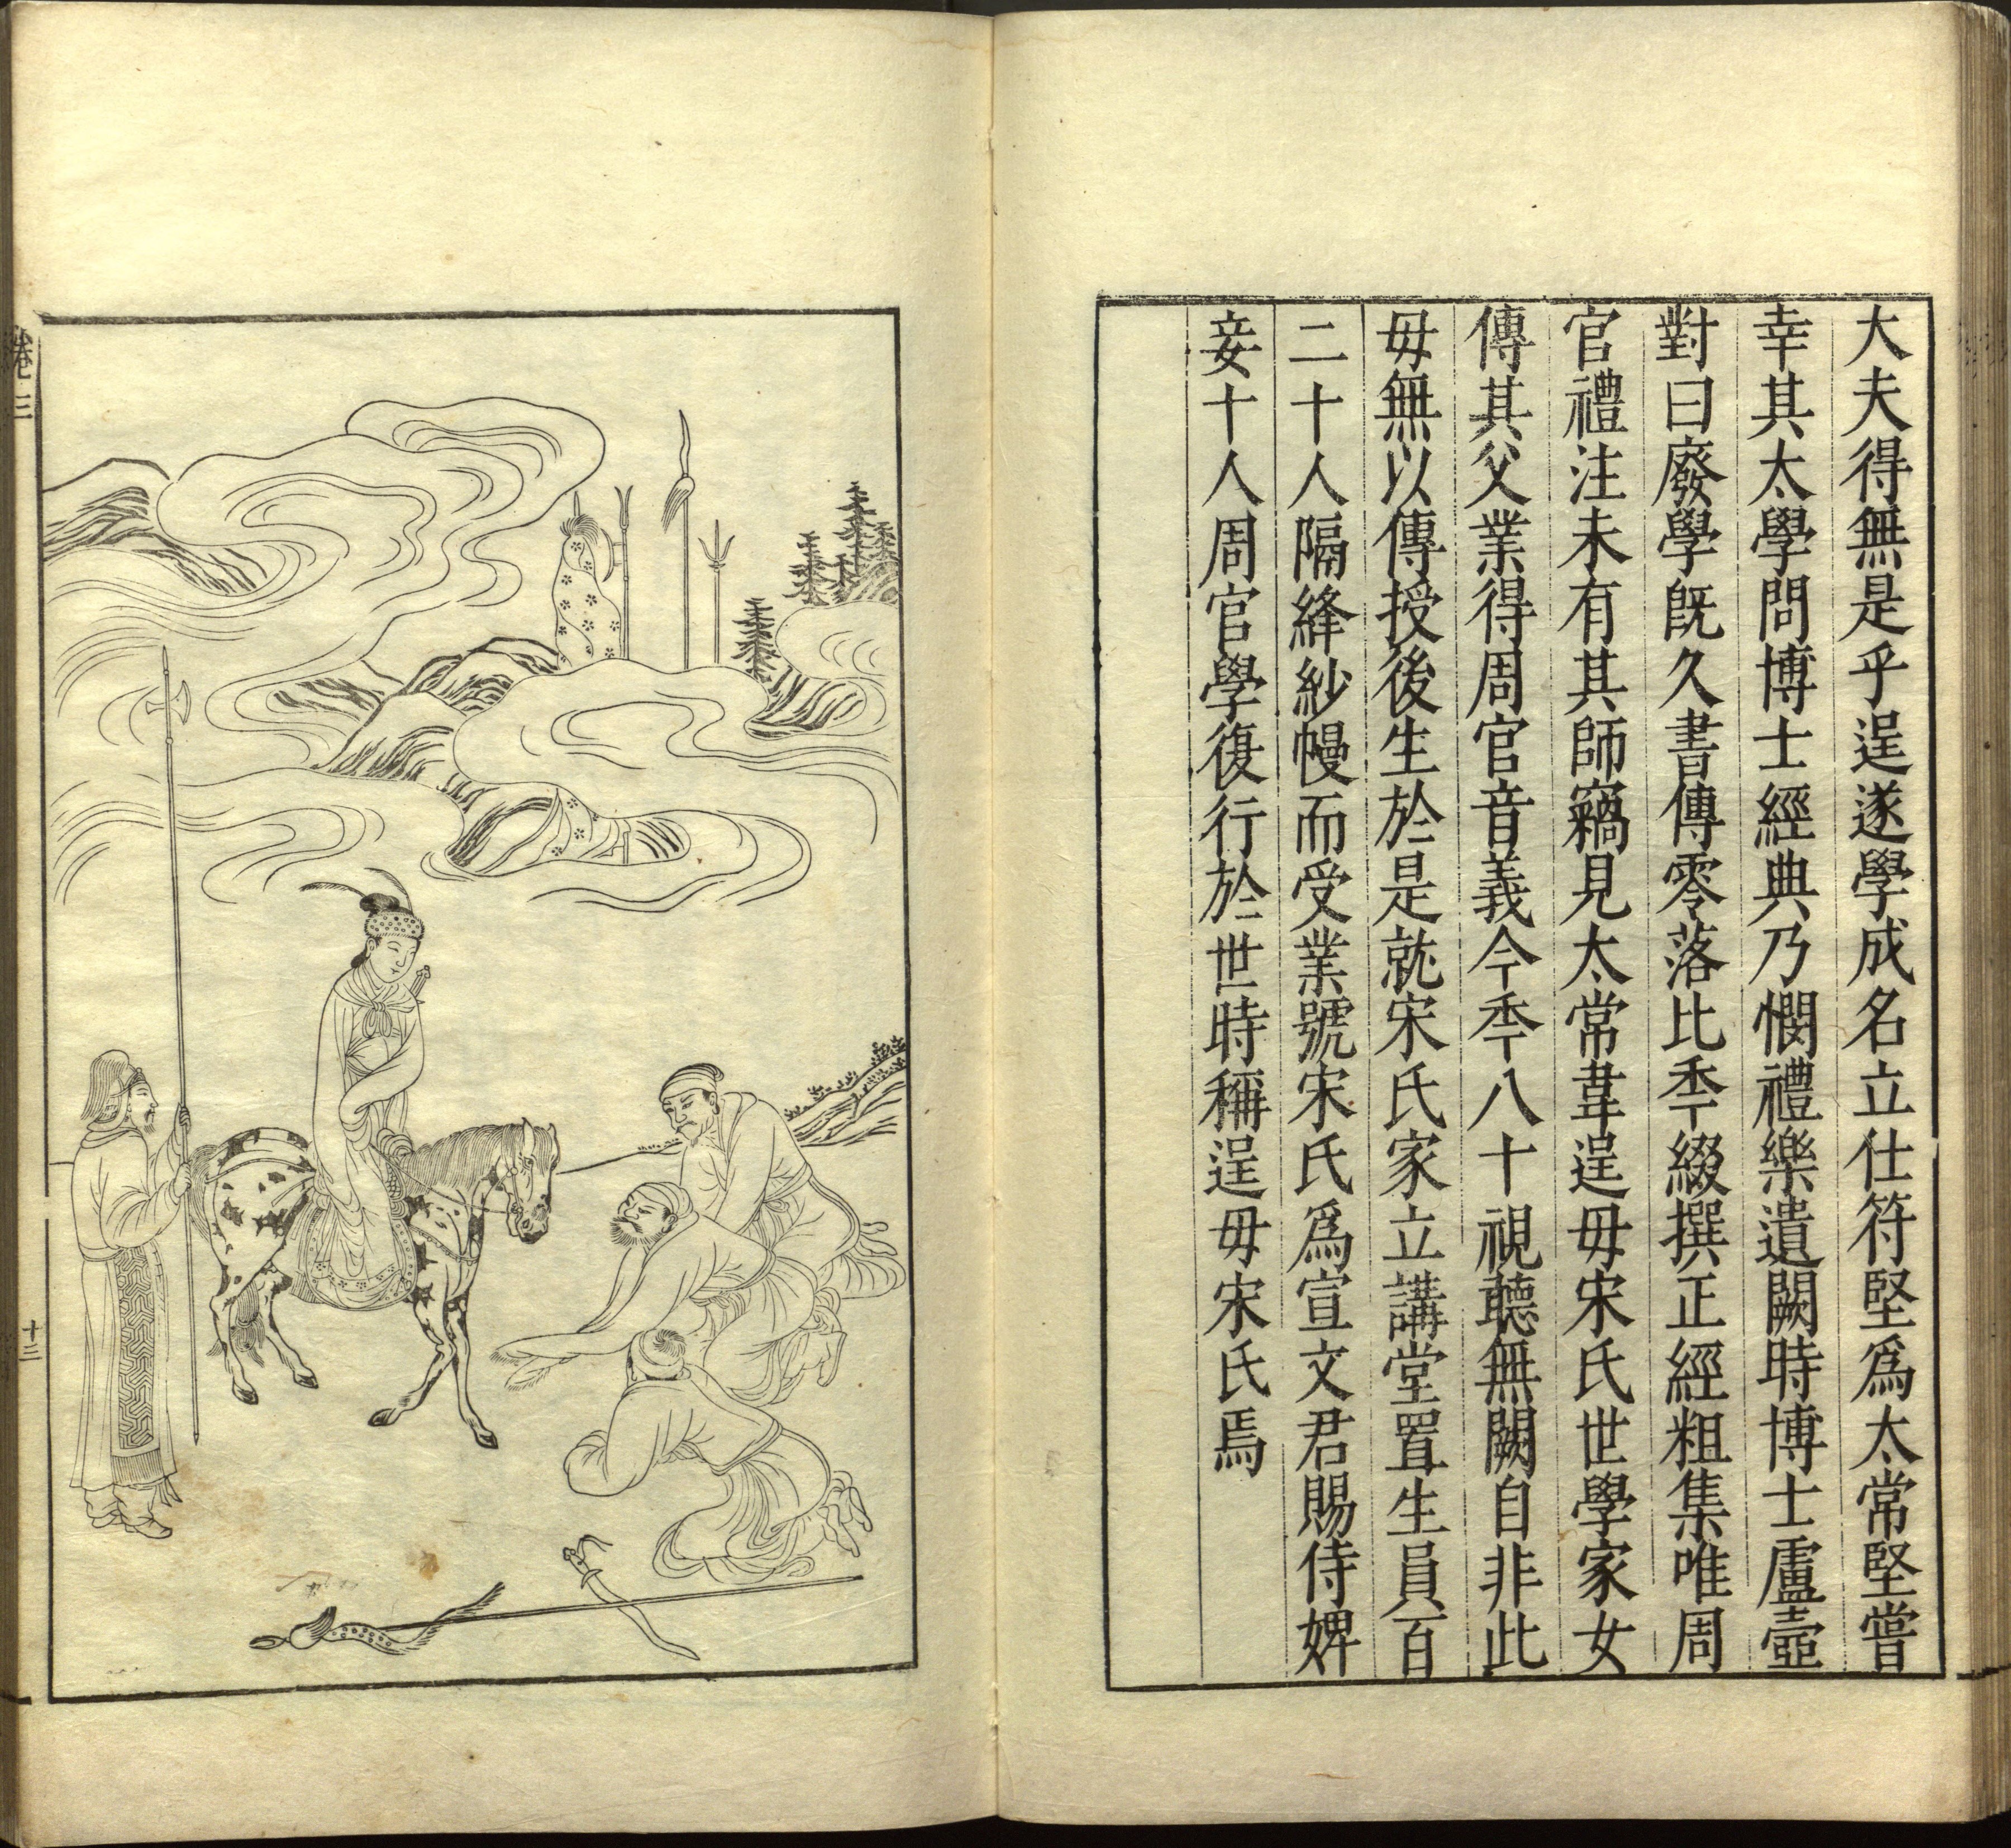 大夫得無是乎逞遂學成名立仕符堅爲太常堅嘗
幸其太學問博士經典乃憫禮樂遺闕時博士盧壺
對曰廢學旣久書傳零落比秊綴撰正經粗集唯周
官禮注未有其師竊見太常韋逞毋宋氏世學家女
傳其父業得周官音義今秊八十視聽無闕自非此
毋無以傳授後生於是就宋氏家立講堂置生員百
二十人隔絳紗幔而受業號宋氏爲宣文君賜侍婢
妾十人周官學復行於世時稱逞毋宋氏焉
卷三
十三